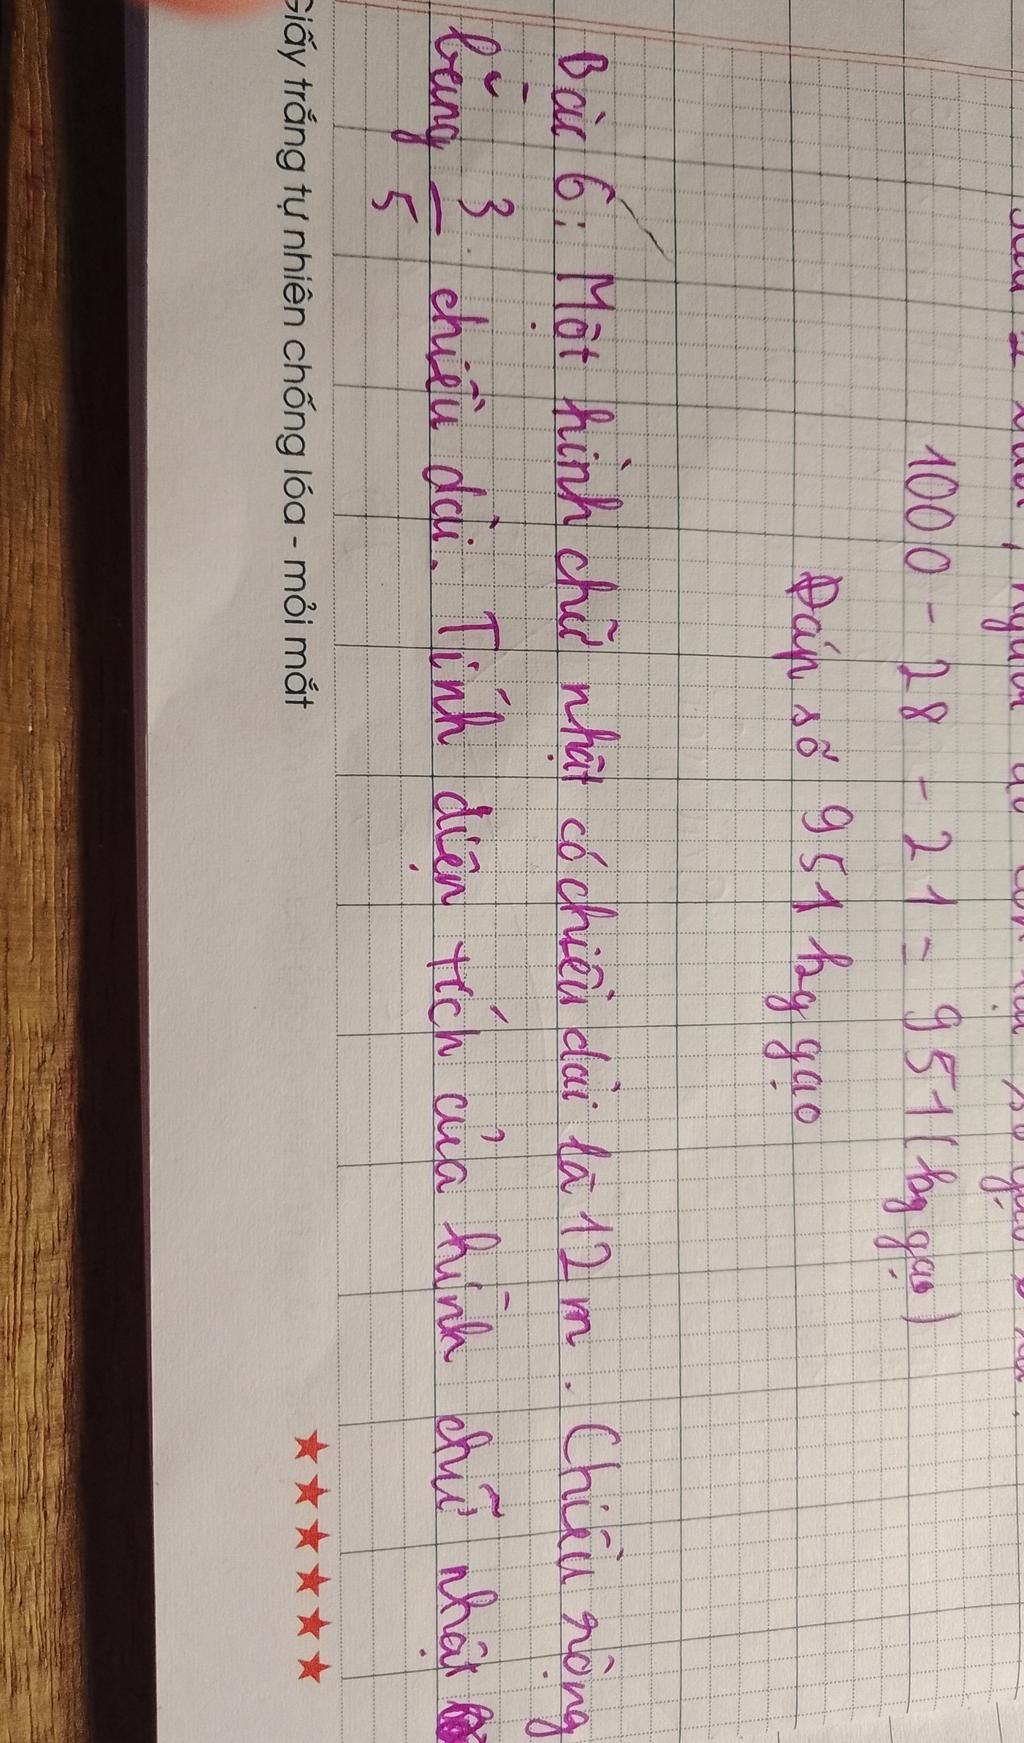 1000 - 28 - 21 = 951 (kg gạo)
Đáp số 951 kg gạo
Bài 6: Một hình chữ nhật có chiều dài là 12 m. Chiều rộng
bằng 3/5 chiều dài. Tính diện tích của hình chữ nhật
Giấy trắng tự nhiên chống lóa - mỏi mắt